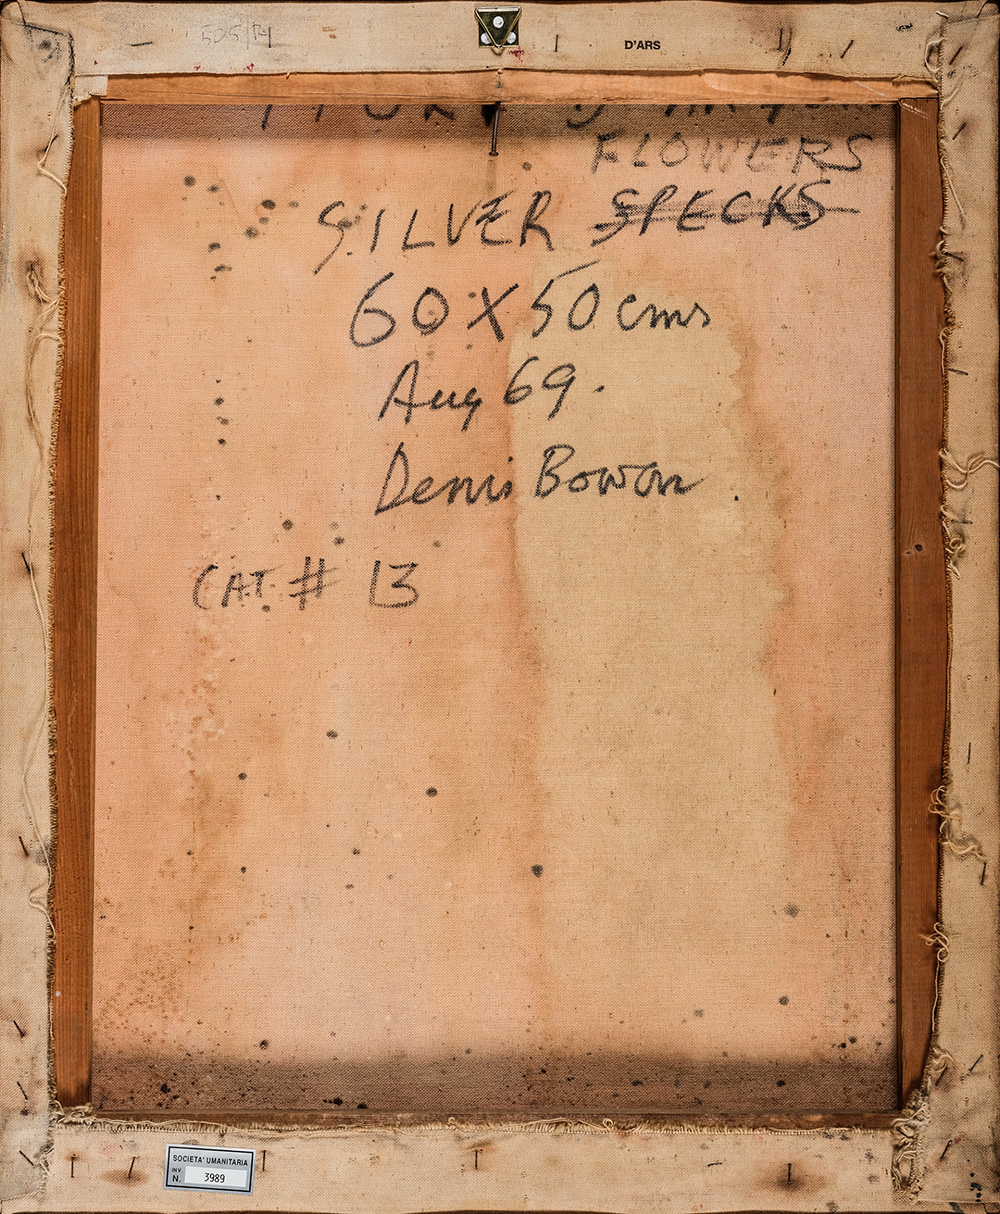 505/14
D'ARS
FLOWERS
SILVER SPECKS
60 X 50 cms
Aug 69.
Denis Bowen.
CAT. # 13
SOCIETA' UMANITARIA
INV.
N. 3989